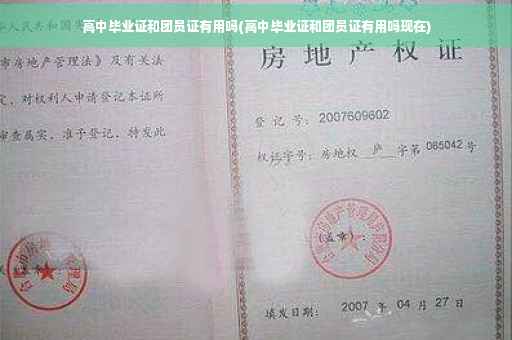 高中毕业证和团员证有用吗(高中毕业证和团员证有用吗现在)
人民共和国
市房地产管理法》及有关法
定，对权利人申请登记本证所
审查属实，准予登记，特发此
房地产权证
登记号：2007609602
权证字号：房地权 庐 字第 085042 号
(盖章)：
填发日期：2007 年 04 月 27 日